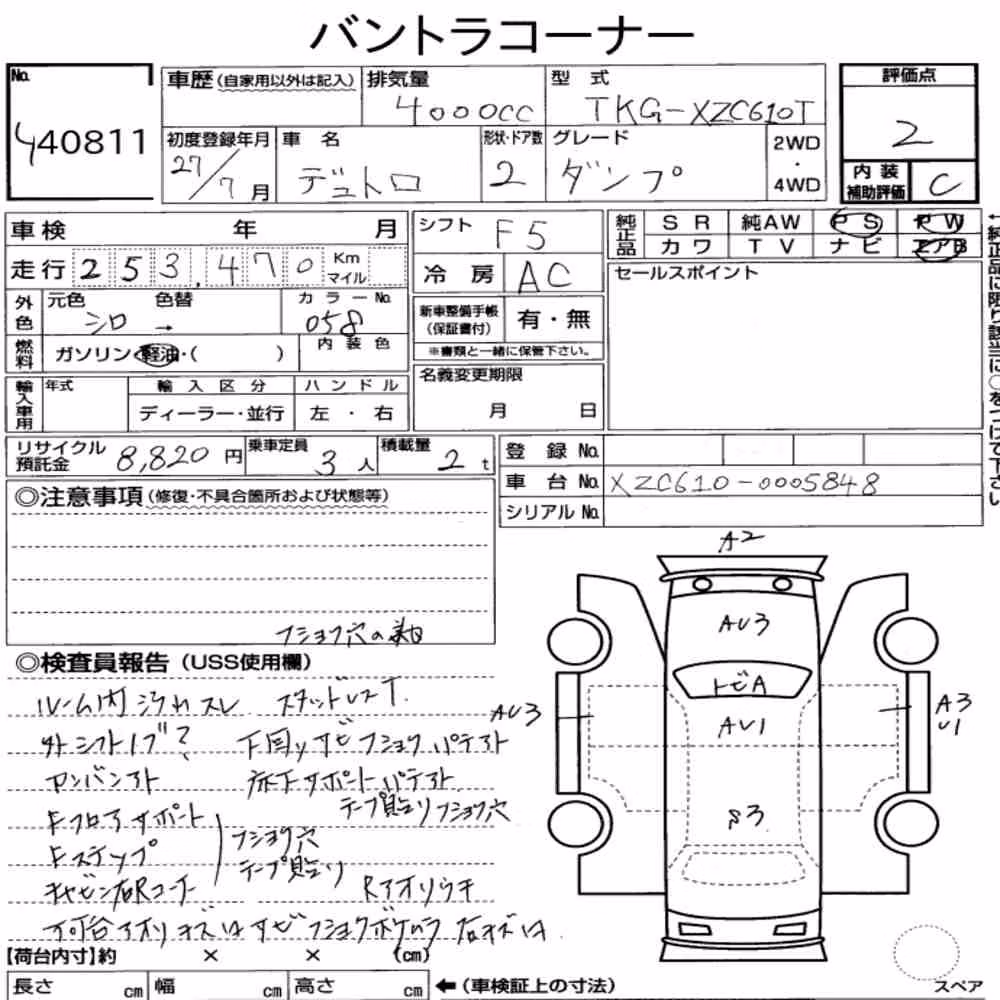 バントラコーナー
No. 440811
車歴 (自家用以外は記入)
排気量 4000cc
型式 TKG-XZC610T
評価点 2
初度登録年月 27/7月
車名 デュトロ
形状・ドア数 2
グレード ダンプ
2WD・4WD
内装補助評価 C
車検 年 月
走行 253,470 Km マイル
シフト F5
冷房 AC
純正品 SR 純AW PS PW
カワ TV ナビ エアB
←純正品に限り該当に○をつけて下さい
セールスポイント
外色 元色 シロ → 色替
カラーNo. 058
燃料 ガソリン・軽油・( )
内装色
新車整備手帳(保証書付) 有・無
※書類と一緒に保管下さい。
輸入車用 年式
輸入区分 ディーラー・並行
ハンドル 左・右
名義変更期限 月 日
リサイクル預託金 8,820円
乗車定員 3人
積載量 2t
登録No.
車台No. XZC610-0005848
シリアルNo.
◎注意事項 (修復・不具合箇所および状態等)
フショク穴の為
◎検査員報告 (USS使用欄)
ルーム内ヨゴレスレ スタッドレスT.
外シフトノブ?
下回リサビフショクパテアト
カンバンアト
床下サポートパテアト
テープ貼リフショク穴
Fフロアサポート
Fステップ
フショク穴
テープ貼リ
キャビン右Rコーナー
Rアオリウチ
荷台アオリキズ サビフショクボケ 右キズ
A2
AU3
トビA
AU1
S3
AU3
A3
U1
【荷台内寸】約 × × (cm)
長さ cm 幅 cm 高さ cm ←(車検証上の寸法)
スペア